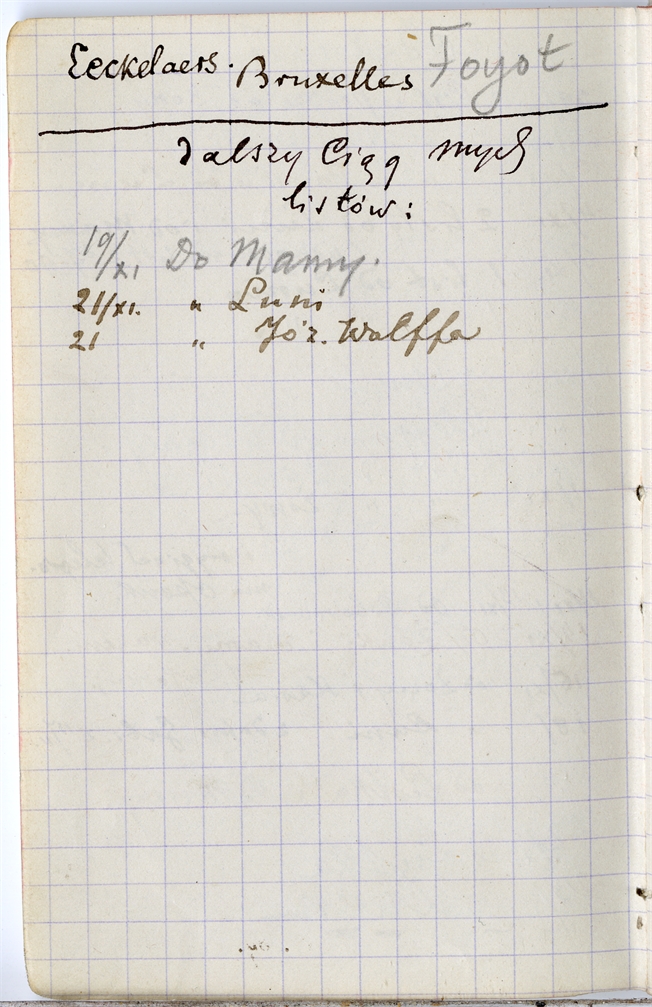 Eeckelaers. Bruxelles Foyot
Dalszy Ciąg mych
listów:
19/XI Do Mamy.
21/XI. " Luni
21 " Józ. Wolffa